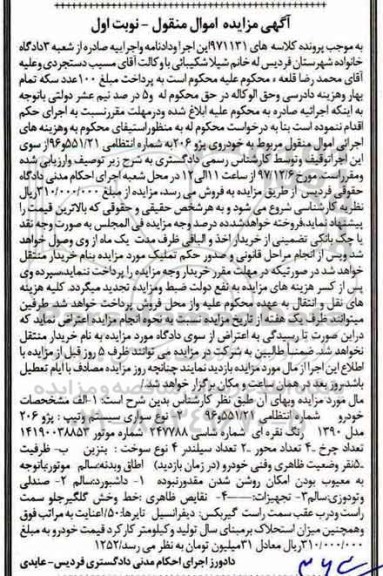 آگهی مزایده اموال منقول - نوبت اول
به موجب پرونده کلاسه های ۹۷۱۱۳۱ این اجرا ودادنامه واجراییه صادره از شعبه ۳دادگاه
خانواده شهرستان فردیس له خانم شیلا شکیبائی با وکالت آقای مسیب دستجردی وعلیه
آقای محمد رضا قلعه ء محکوم علیه محکوم است به پرداخت مبلغ ۱۰۰عدد سکه تمام
بهار وهزینه دادرسی وحق الوکاله در حق محکوم له و۵ در صد نیم عشر دولتی باتوجه
به اینکه اجرائیه صادره به محکوم علیه ابلاغ شده ودرمهلت مقررنسبت به اجرای حکم
اقدام ننموده است بنا به درخواست محکوم له به منظوراستیفای محکوم به وهزینه های
اجرائی اموال منقول مربوط به خودروی پژو ۲۰۶به شماره انتظامی ۵۵۱/۲۱و۹۶از سوی
این اجراتوقیف وتوسط کارشناس رسمی دادگستری به شرح زیر توصیف وارزیابی شده
ومقرراست مورخ ۹۷/۱۲/۶ از ساعت ۱۱الی۱۲ در محل شعبه اجرای احکام مدنی دادگاه
حقوقی فردیس از طریق مزایده به فروش می رسد، مزایده از مبلغ ۳۱۰/۰۰۰/۰۰۰ریال
نظریه کارشناسی شروع می شود و به هرشخص حقیقی و حقوقی که بالاترین قیمت را
پیشنهاد نماید،فروخته خواهدشد.ده درصد وجه مزایده فی المجلس به صورت وجه نقد
یا چک بانکی تضمینی از خریدار اخذ و الباقی ظرف مدت یک ماه از وی وصول خواهد
شد وپس از انجام مراحل قانونی و صدور حکم تملیک مورد مزایده بنام خریدار منتقل
خواهد شد در صورتیکه در مهلت مقرر خریدار وجه مزایده را پرداخت ننماید،سپرده وی
پس از کسر هزینه های مزایده به نفع دولت ضبط ومزایده تجدید میگردد. کلیه هزینه
های نقل و انتقال به عهده محکوم علیه واز محل فروش پرداخت خواهد شد. طرفین
میتوانند ظرف یک هفته از تاریخ مزایده نسبت به نحوه انجام مزایده اعتراض نماید که
دراین صورت تا رسیدگی به اعتراض از سوی دادگاه مورد مزایده به نام خریدار منتقل
نخواهد شد. ضمنا طالبین به شرکت در مزایده می توانند ظرف ۵ روز قبل از مزایده با
اطلاع این اجرا از مال مورد مزایده بازدید نمایند چنانچه روز مزایده مصادف با ایام تعطیل
باشد،روز بعد در همان ساعت و مکان برگزار خواهد شد./
مال مورد مزایده وبهای آن طبق نظر کارشناس بدین شرح است: ۱-الف مشخصات
خودرو شماره انتظامی ۵۵۱/۲۱و۹۶ ۲- نوع سواری سیستم وتیپ : پژو ۲۰۶
مدل ۱۳۹۰ رنگ نقره ای شماره شاسی ۲۴۷۷۸۸ شماره موتور ۱۴۱۹۰۰۳۸۸۵۳
تعداد چرخ ۴- تعداد محور ۲- تعداد سیلندر ۴ نوع سوخت : بنزین ب- ظرفیت
۵-نفر وضعیت ظاهری وفنی خودرو (در زمان بازدید) اطاق وبدنه:سالم موتور:باتوجه
به معیوب بودن امکان روشن شدن مقدورنبوده ۱- داشبورد:سالم ۲- صندلی
وتودوزی:سالم۳- تجهیزات:---- ۴- نقایص ظاهری :خط وخش گلگیرجلو سمت
راست ودرب عقب سمت راست گیربکس: دیفرانسیل تایرها:۵۰٪اعنایت به مراتب فوق
وهمچنین میزان استحلاک برمبنای سال تولید و کیلومتر کارکرد قیمت خودرو به مبلغ
۳۱۰/۰۰۰/۰۰۰ریال معادل ۳۱میلیون تومان به نظر می رسد/۱۲۵۲
دادورز اجرای احکام مدنی دادگستری فردیس- عابدی